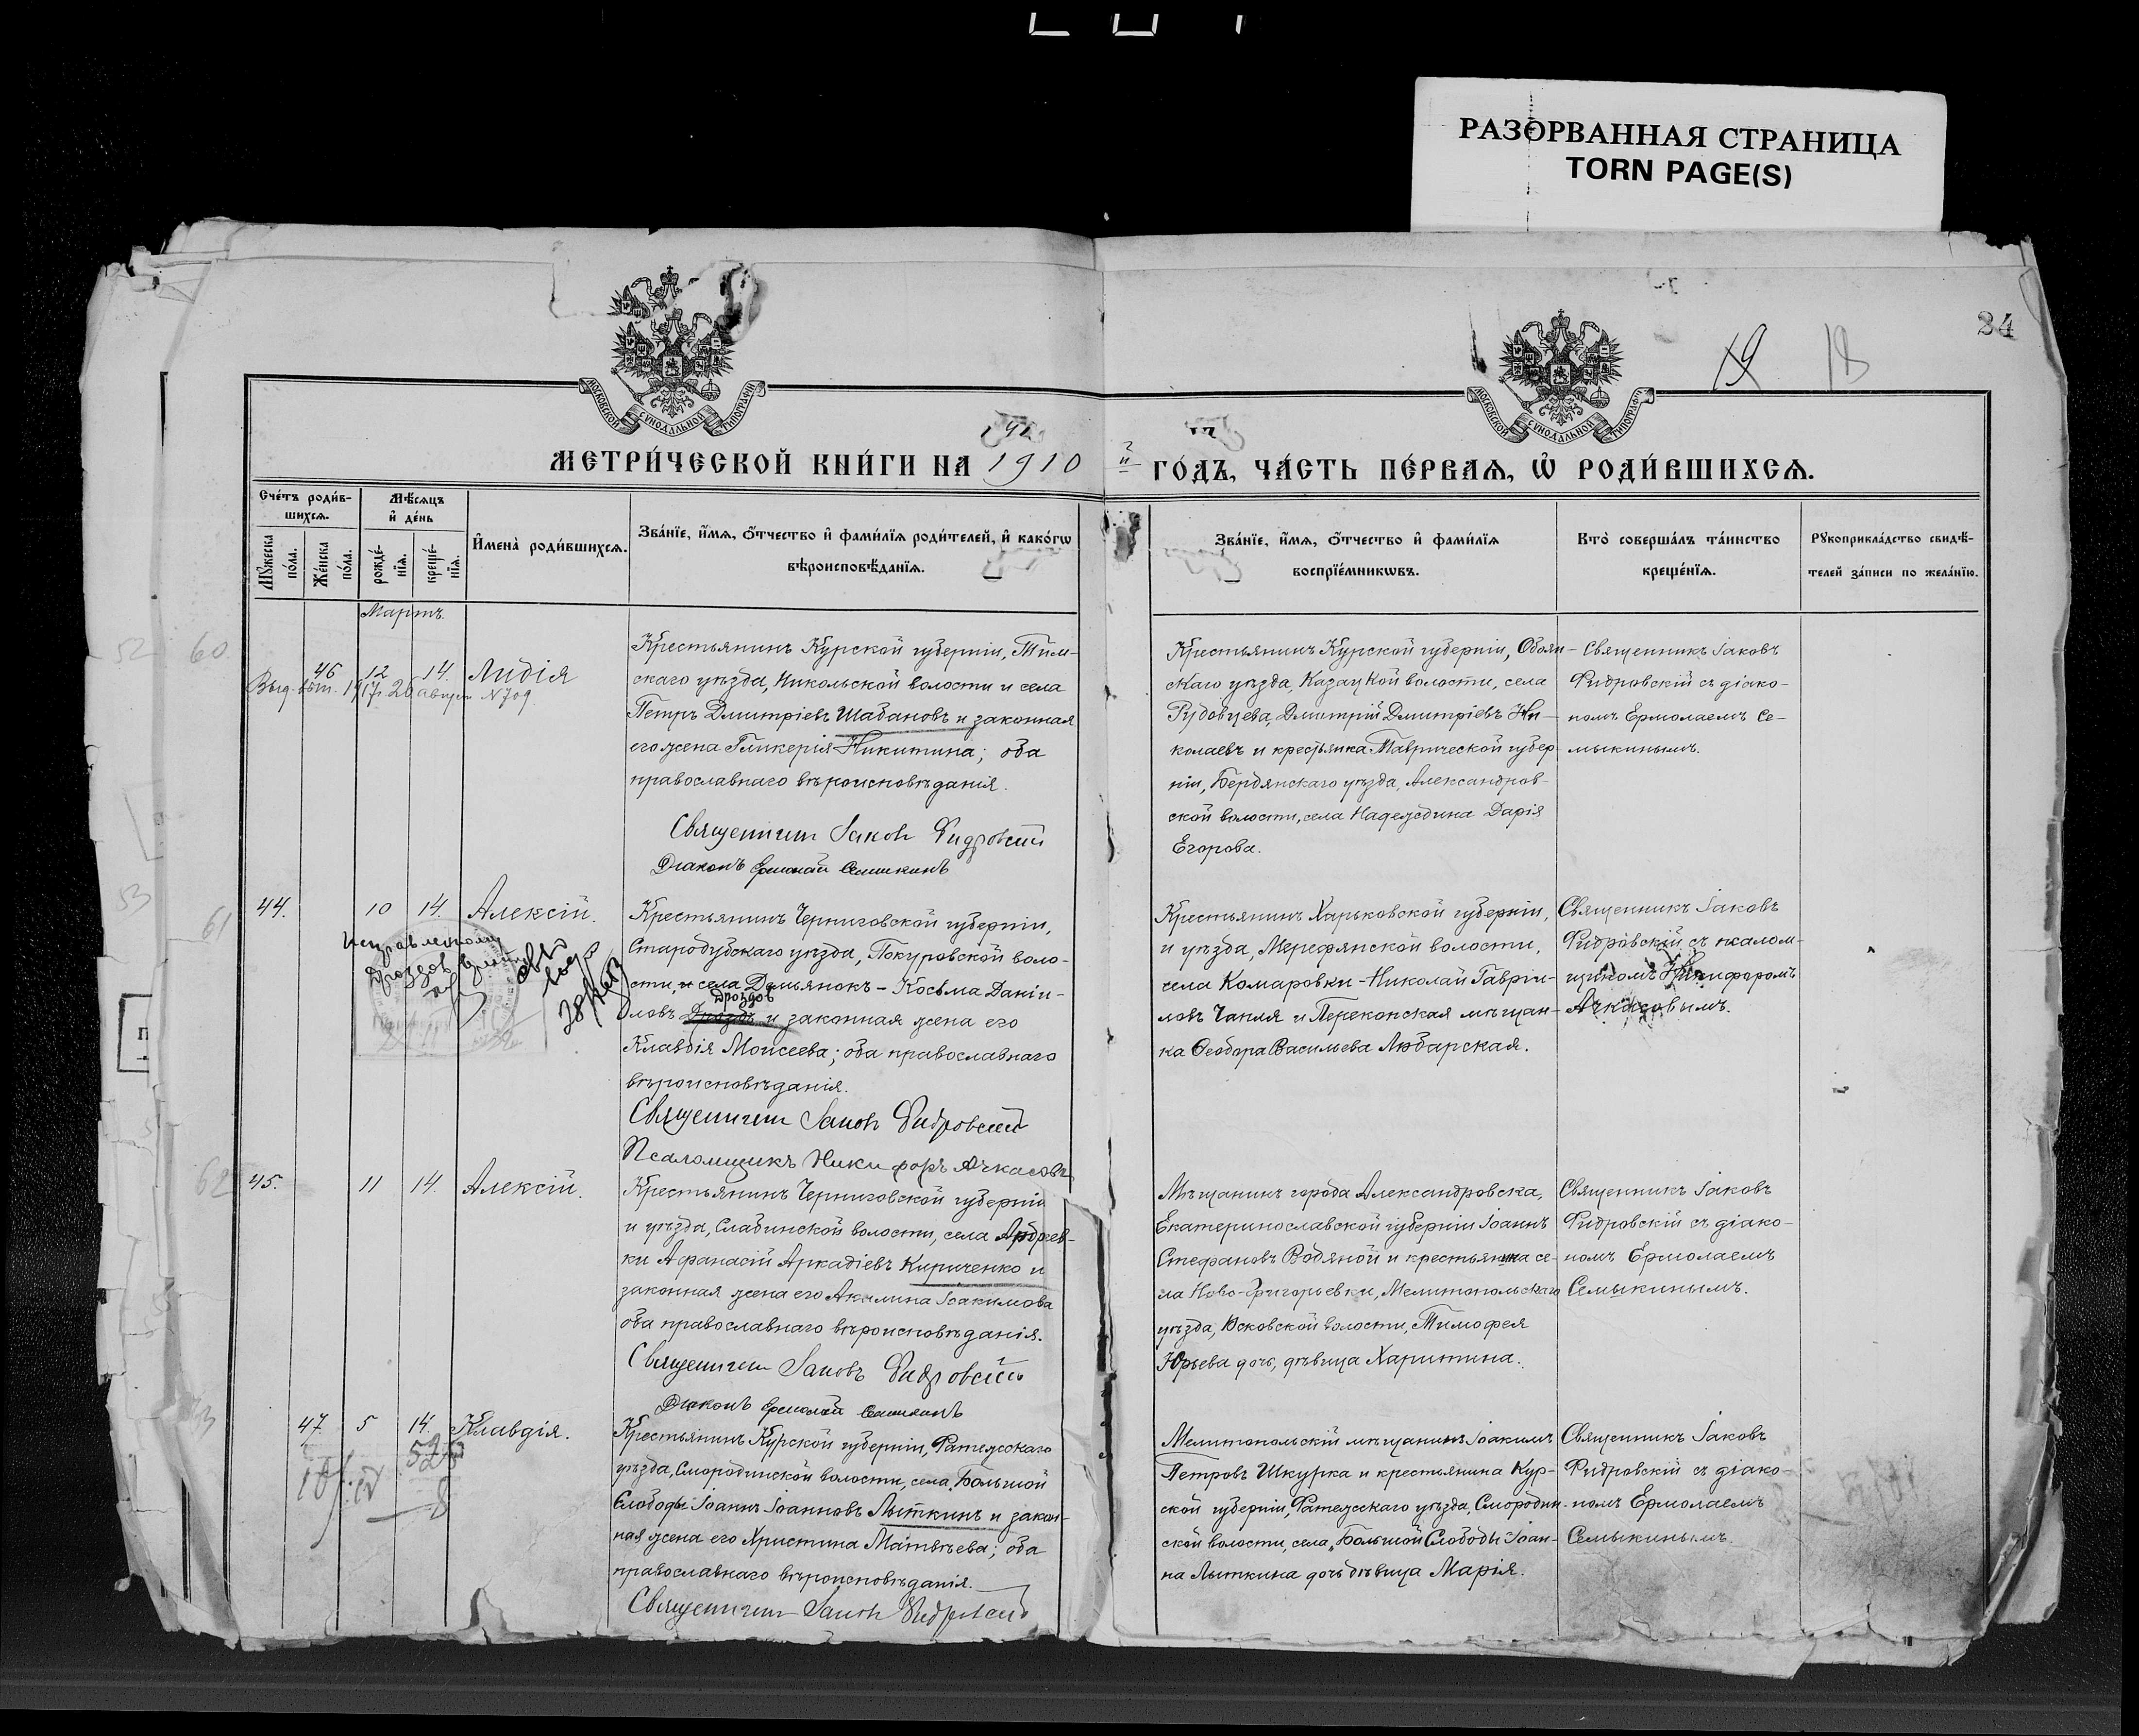 РАЗОРВАННАЯ СТРАНИЦА
TORN PAGE(S)
24
19
18
МОСКОВСКОЙ СѴНОДАЛЬНОЙ ТИПОГРАФІИ
МОСКОВСКОЙ СѴНОДАЛЬНОЙ ТИПОГРАФІИ
МЕТРИ́ЧЕСКОЙ КНИ́ГИ НА 1910 й ГО́ДЪ, ЧА́СТЬ ПЕ́РВАѦ, Ѡ҆ РОДИ́ВШИХСѦ.
Сче́тъ роди́в-
шихсѧ.
Мꙋ́жеска по́ла.
Же́нска по́ла.
Мѣ́сѧцъ
и҆ де́нь
рожде́-
нїѧ.
креще́-
нїѧ.
И҆мена̀ роди́вшихсѧ.
Зва́нїе, и҆́мѧ, ѻ҆́тчество и҆ фами́лїѧ роди́телей, и҆ како́гѡ
вѣроисповѣ́данїѧ.
Зва́нїе, и҆́мѧ, ѻ҆́тчество и҆ фами́лїѧ
воспрїе́мникѡвъ.
Кто̀ соверша́лъ та́инство
креще́нїѧ.
Рꙋкоприкла́дство свидѣ́-
телей за́писи по жела́нїю.
Мартъ.
60
46 12 14. Лидія
Выд. 1917 26 август N 709
Крестьянинъ Курской губерніи, Тим-
скаго уѣзда, Никольской волости и села
Петръ Дмитріевъ Шабановъ и законная
его жена Гликерія Никитина; оба
православнаго вѣроисповѣданія.
Священникъ Іаковъ Фидровскій
Діаконъ Ермолай Семыкинъ
Крестьянинъ Курской губерніи, Обоян-
скаго уѣзда, Казацкой волости, села
Рудовцева, Дмитрій Дмитріевъ Ни-
колаевъ и крестьянка Таврической губер-
ніи, Бердянскаго уѣзда, Александров-
ской волости, села Надеждина Дарія
Егорова.
Священникъ Іаковъ
Фидровскій съ діако-
номъ Ермолаемъ Се-
мыкинымъ.
61
44. 10 14. Алексій.
Исправленному
Дроздов верить
Крестьянинъ Черниговской губерніи,
Стародубскаго уѣзда, Покуровской воло-
сти, и села Демьянокъ - Косьма Даніи-
Дроздов
ловъ Дроздъ и законная жена его
Клавдія Моисеева; оба православнаго
вѣроисповѣданія.
Священникъ Іаковъ Фидровскій
Псаломщикъ Никифоръ Ачкасовъ
Крестьянинъ Харьковской губерніи,
и уѣзда, Мерефянской волости,
села Комаровки - Николай Гаврiи-
ловъ Чапля и Перекопская мѣщан-
ка Ѳеодора Васильева Любарская.
Священникъ Іаковъ
Фидровскій съ псалом-
щикомъ Никифоромъ
Ачкасовымъ.
62
45. 11 14. Алексій.
Крестьянинъ Черниговской губерніи
и уѣзда, Слабинской волости, села Андреев-
ки Афанасій Аркадіевъ Кириченко и
законная жена его Акилина Іоакимова
оба православнаго вѣроисповѣданія.
Священникъ Іаковъ Фидровскій
Діаконъ Ермолай Семыкинъ
Мѣщанинъ города Александровска,
Екатеринославской губерніи Іоаннъ
Стефановъ Водяной и крестьянина се-
ла Ново-Григорьевки, Мелитопольскаго
уѣзда, Юзковской волости, Тимофея
Юрьева дочь, дѣвица Харитина.
Священникъ Іаковъ
Фидровскій съ діако-
номъ Ермолаемъ
Семыкинымъ.
47 5 14. Клавдія.
Крестьянинъ Курской губерніи, Фатежскаго
уѣзда, Смородинской волости, села Большой
Слободы Іоаннъ Іоанновъ Лыткинъ и закон-
ная жена его Христина Матвѣева; оба
православнаго вѣроисповѣданія.
Священникъ Іаковъ Фидровскій
Мелитопольскій мѣщанинъ Іоакимъ
Петровъ Шкурка и крестьянина Кур-
ской губерніи, Фатежскаго уѣзда, Смородин-
ской волости, села Большой Слободы Іоан-
на Лыткина дочь дѣвица Марія.
Священникъ Іаковъ
Фидровскій съ діако-
номъ Ермолаемъ
Семыкинымъ